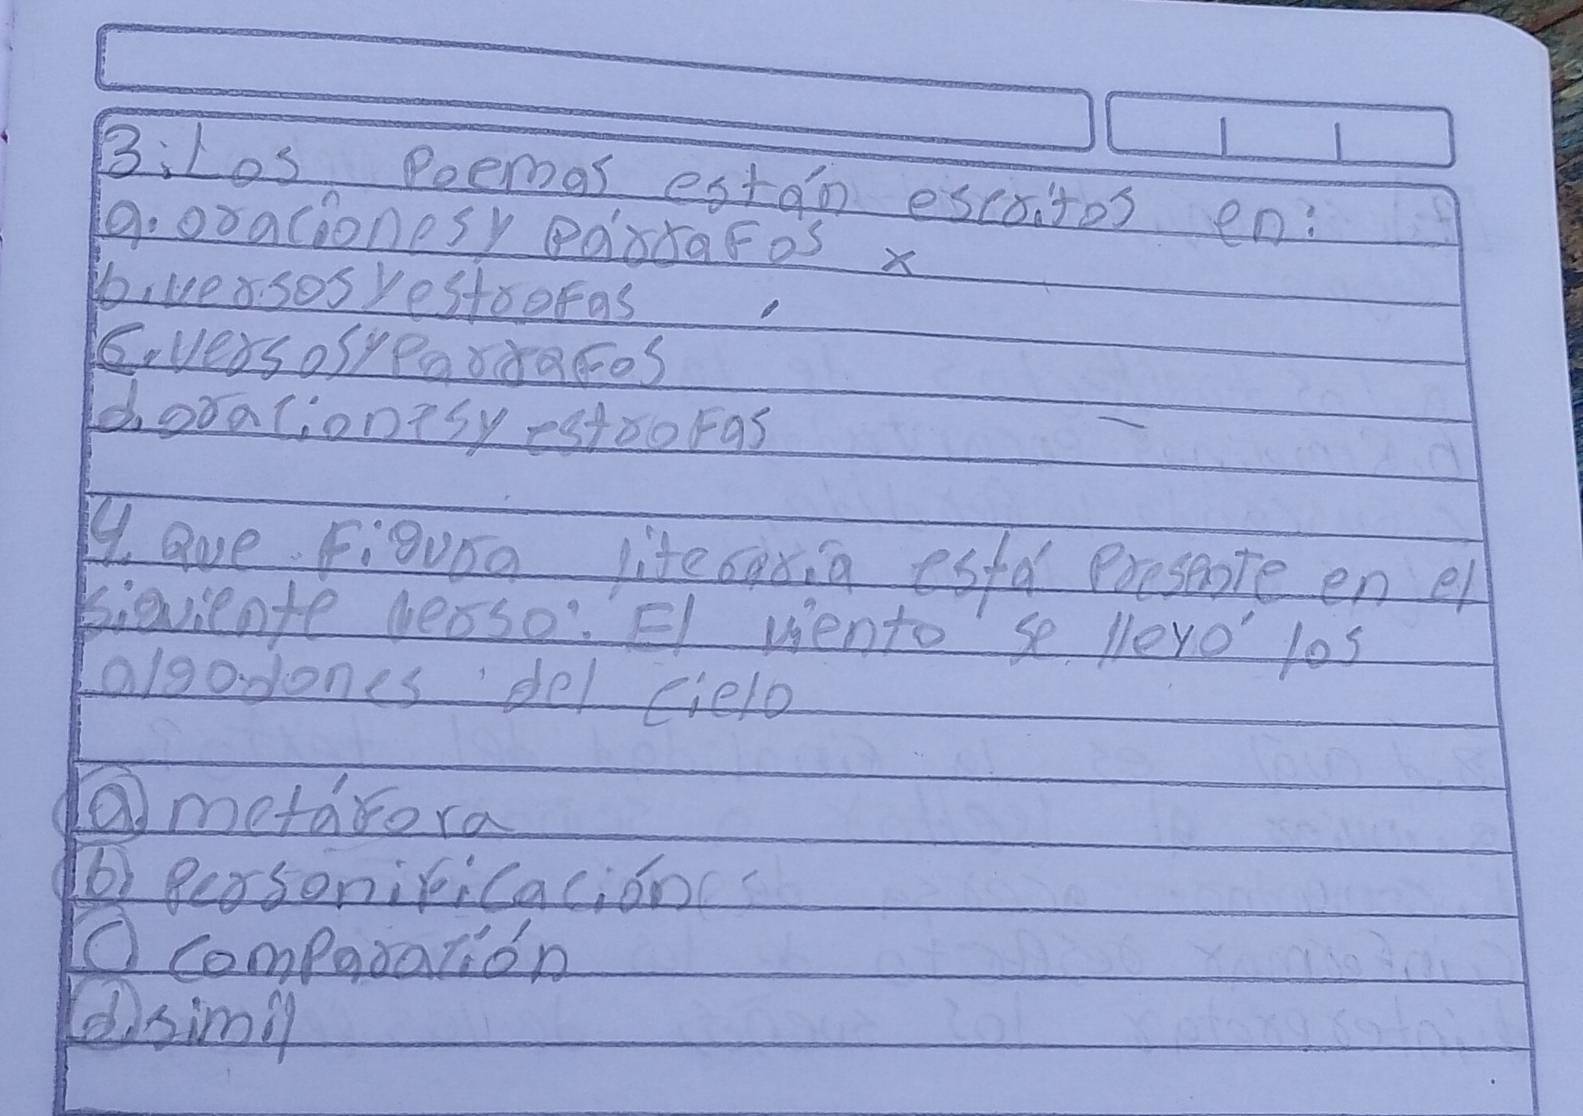 3. Los Poemas están escritos en:
a. oraciones y Párrafos x
b. versos y estrofas
c. versos y Parrafos
d. oraciones y estrofas
4. Que Figura literaria está Presente en el
siguiente verso: El viento se llevó los
algodones del cielo
a) metáfora
b) Personificación
c) comparación
d) simil